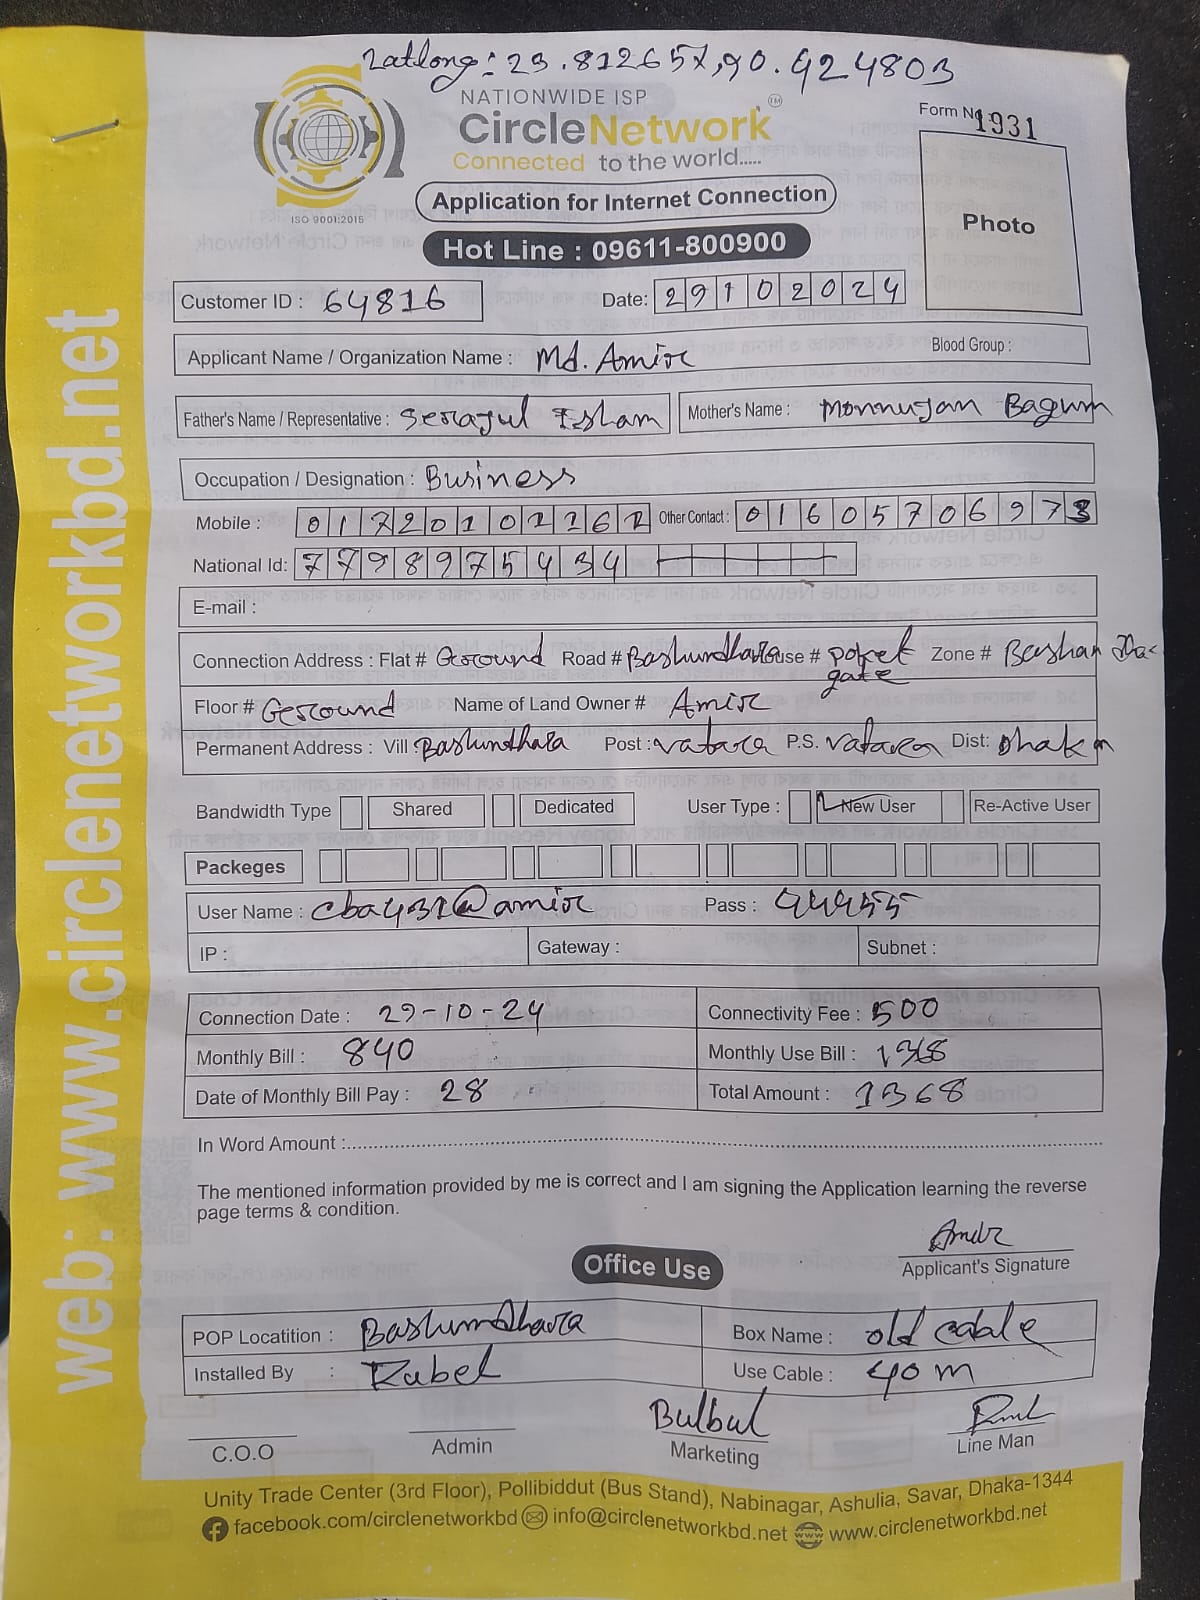 Latlong: 23.812657,90.424803
NATIONWIDE ISP
CircleNetwork TM
Connected to the world.....
ISO 9001:2015
Form No 1931
Photo
Application for Internet Connection
Hot Line : 09611-800900
Customer ID : 64816 Date: 29102024
Applicant Name / Organization Name : Md. Amir Blood Group :
Father's Name / Representative : Serajul Islam Mother's Name : Monnujan Bagum
Occupation / Designation : Business
Mobile : Other Contact : 01605706973
National Id: 7798975434
E-mail :
Connection Address : Flat # Ground Road # Bashundhara House # poket gate Zone #
Floor # Ground Name of Land Owner # Amir
Permanent Address : Vill Bashundhara Post : vatara P.S. vatara Dist: Dhaka
Bandwidth Type Shared Dedicated User Type : New User Re-Active User
Packeges
User Name : cba431@amir Pass : 44455
IP : Gateway : Subnet :
Connection Date : 29-10-24 Connectivity Fee : 500
Monthly Bill : 840 Monthly Use Bill : 1368
Date of Monthly Bill Pay : 28 Total Amount : 1368
In Word Amount :
The mentioned information provided by me is correct and I am signing the Application learning the reverse
page terms & condition.
Amir
Applicant's Signature
Office Use
POP Locatition : Bashundhara Box Name : old cable
Installed By : Rubel Use Cable : 40 m
Bulbul
C.O.O Admin Marketing Line Man
Unity Trade Center (3rd Floor), Pollibiddut (Bus Stand), Nabinagar, Ashulia, Savar, Dhaka-1344
facebook.com/circlenetworkbd info@circlenetworkbd.net www.circlenetworkbd.net
web: www.circlenetworkbd.net